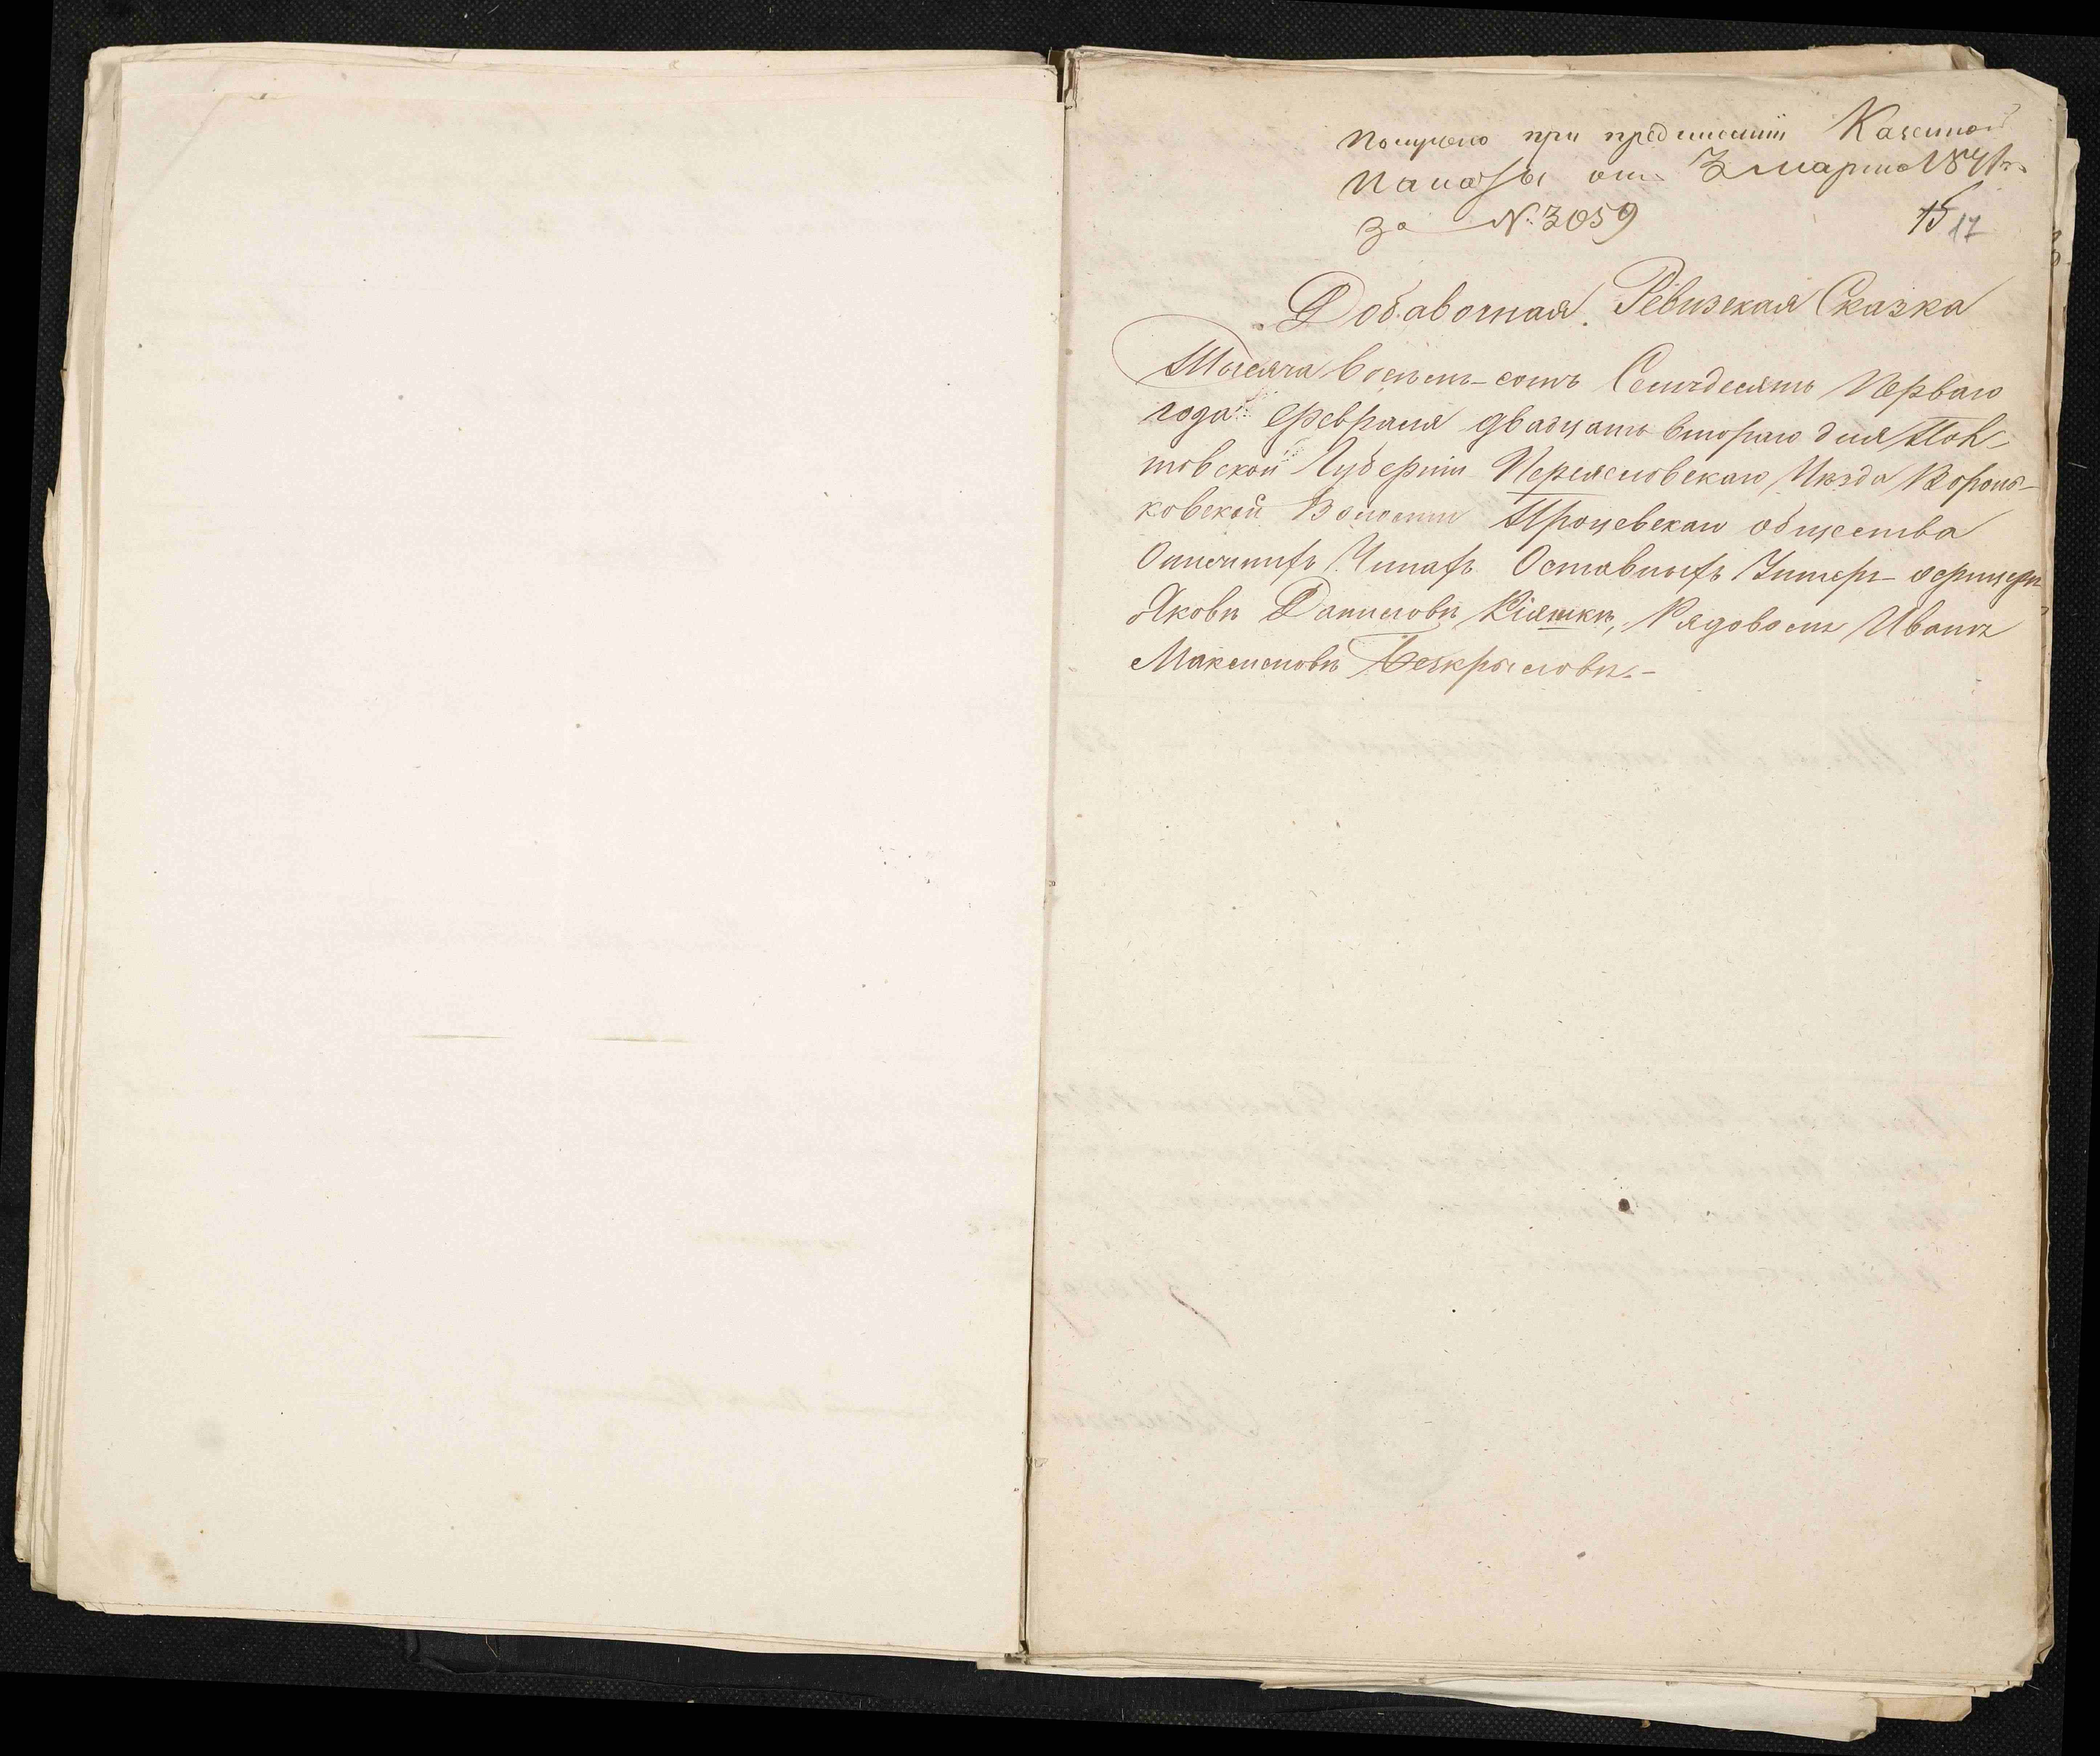 Получено при предписании Казенной
Палаты от 3 марта 1871 г.
за N. 3059
15 17
Добавочная Ревизская Сказка
Тысяча восемь-сотъ Семьдесятъ Перваго
года Февраля двадцать втораго дня Пол
товской Губерніи Переяславскаго Уѣзда Вороньковской
ковской Волости Процевскаго общества
Чинахъ Оставныхъ Унтеръ-офицеръ
Яковъ Даниловъ Кіяшкъ, Рядовомъ Иванъ
Максимовъ Безкрыловъ.-